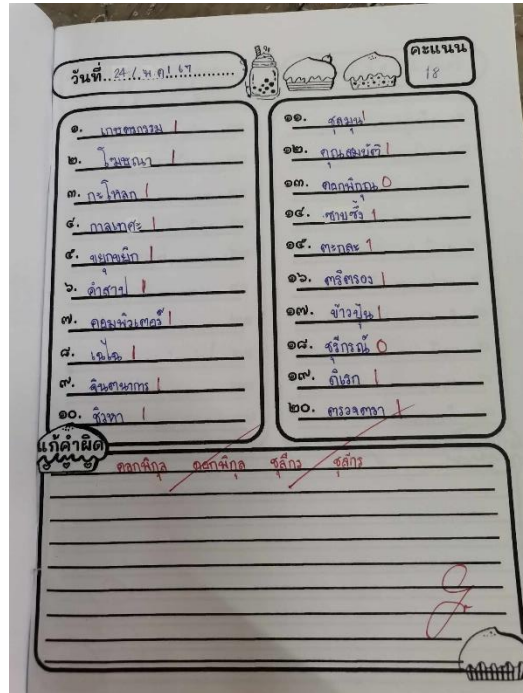 วันที่ 24 / พ.ค / 67
คะแนน
18
๑. เกษตรกรรม 1
๒. โฆษณา 1
๓. กะโหลก 1
๔. กาลเทศะ 1
๕. ขยุกขยิก 1
๖. คำสาป 1
๗. คอมพิวเตอร์ 1
๘. เฉไฉ 1
๙. จินตนาการ 1
๑๐. ชิวหา 1
๑๑. ชุลมุน 1
๑๒. คุณสมบัติ 1
๑๓. ดอกพิกุณ 0
๑๔. ซาบซึ้ง 1
๑๕. ตะกละ 1
๑๖. ตริตรอง 1
๑๗. ข้าวปุ้น 1
๑๘. 0
๑๙. ดิเรก 1
๒๐. ตรวจตรา 1
แก้คำผิด
ดอกพิกุล ดอกพิกุล